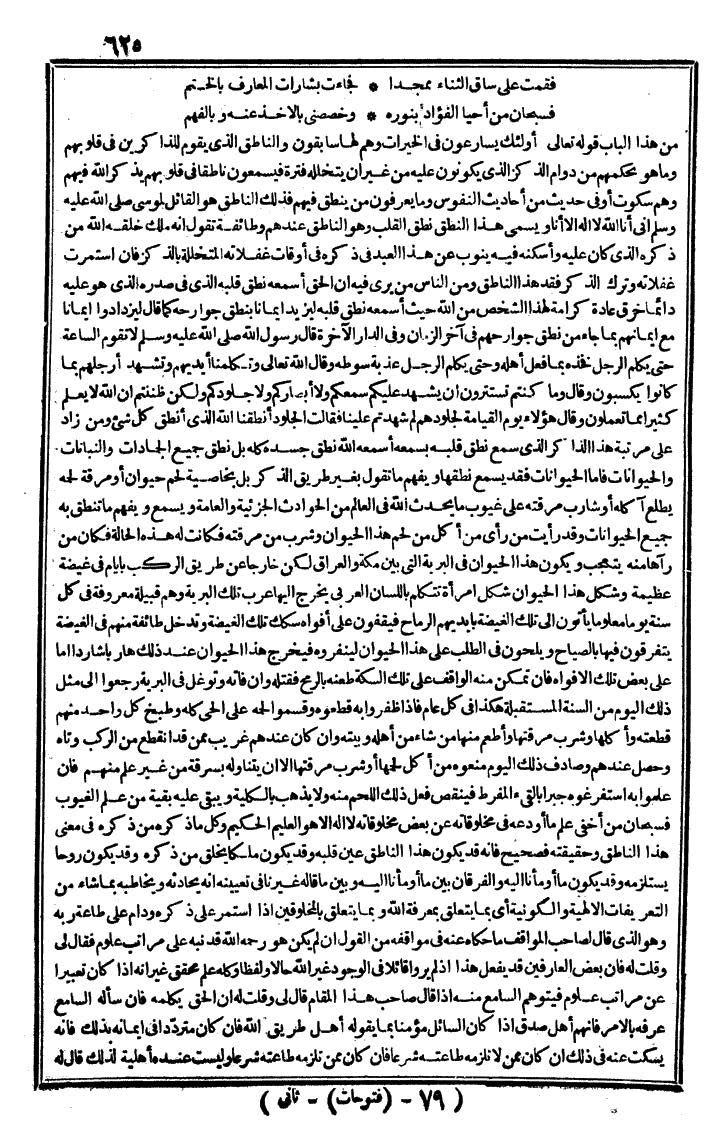 ٦٢٥
فقمت على ساق الثناء ممجدا * فجاءت بشارات المعارف بالختم
فسبحان من أحيا الفؤاد بنوره * وخصصنى بالاخذ عنه وبالفهم
من هذا الباب قوله تعالى أولئك يسارعون فى الخيرات وهم لها سابقون والناطق الذى يقوم للذاكرين فى قلوبهم
وما هو بحكمهم من دوام الذكر الذى يكونون عليه من غير ان يتخلله فترة فيسمعون ناطقا فى قلوبهم يذكر الله فيهم
وهم سكوت أو فى حديث من أحاديث النفوس وما يعرفون من ينطق فيهم فذلك الناطق هو القائل لموسى صلى الله عليه
وسلم انى أنا الله لا اله الا أنا ويسمى هذا النطق نطق القلب وهو الناطق عندهم وطائفة تقول انه ملك خلقه الله من
ذكره الذى كان عليه وأسكنه فيه ينوب عن هذا العبد فى ذكره فى أوقات غفلاته المتخللة بالذكر فان استمرت
غفلاته وترك الذكر فقد هذا الناطق ومن الناس من يرى فيه ان الحق أسمعه نطق قلبه الذى فى صدره الذى هو عليه
دائما خرق عادة كرامة لهذا الشخص من الله حيث أسمعه نطق قلبه ليزيد ايمانا بنطق جوارحه كما قال ليزدادوا ايمانا
مع ايمانهم بما جاء من نطق جوارحهم فى آخر الزمان وفى الدار الآخرة قال رسول الله صلى الله عليه وسلم لا تقوم الساعة
حتى يكلم الرجل فخذه بما فعل أهله وحتى يكلم الرجل عذبة سوطه وقال الله تعالى وتكلمنا أيديهم وتشهد أرجلهم بما
كانوا يكسبون وقال وما كنتم تستترون ان يشهد عليكم سمعكم ولا أبصاركم ولا جلودكم ولكن ظننتم ان الله لا يعلم
كثيرا مما تعملون وقال هؤلاء يوم القيامة لجلودهم لم شهدتم علينا فقالت الجلود أنطقنا الله الذى أنطق كل شئ ومن زاد
على مرتبة هذا الذاكر الذى سمع نطق قلبه بسمعه أسمعه الله نطق جسده كله بل نطق جميع الجمادات والنباتات
والحيوانات فاما الحيوانات فقد يسمع نطقها ويفهم ما تقول بغير طريق الذكر بل بخاصية لحم حيوان أو مرقة لحمه
يطلع آكله أو شارب مرقته على غيوب ما يحدث الله فى العالم من الحوادث الجزئية والعامة ويسمع ويفهم ما تنطق به
جميع الحيوانات وقد رأيت من رأى من أكل من لحم هذا الحيوان وشرب من مرقته فكانت له هذه الحالة فكان من
رآها منه يتعجب ويكون هذا الحيوان فى البرية التى بين مكة والعراق لكن خارجا عن طريق الركب بايام فى غيضة
عظيمة وشكل هذا الحيوان شكل امرأة تتكلم باللسان العربى يخرج اليها عرب تلك البرية وهم قبيلة معروفة فى كل
سنة يوما معلوما يأتون الى تلك الغيضة بايديهم الرماح فيقفون على أفواه سكك تلك الغيضة وتدخل طائفة منهم فى الغيضة
يتفرقون فيها بالصياح ويلحون فى الطلب على هذا الحيوان لينفروه فيخرج هذا الحيوان عند ذلك هاربا شاردا اما
على بعض تلك الافواه فان تمكن منه الواقف على تلك السكة طعنه بالرمح فقتله وان فاته وتوغل فى البرية رجعوا الى مثل
ذلك اليوم من السنة المستقبلة هكذا فى كل عام فاذا ظفروا به قطعوه وقسموا لحمه على الحى كله وطبخ كل واحد منهم
قطعته وأكلها وشرب مرقتها وأطعم منها من شاء من أهله وبيته وان كان عندهم غريب ممن قد انقطع من الركب وتاه
وحصل عندهم وصادف ذلك اليوم منعوه من أكل لحمها أو شرب مرقتها الا ان يتناوله بسرقة من غير علم منهم فان
علموا به استفرغوه جبرا بالقىء المفرط فينقص فعل ذلك اللحم منه ولا يذهب بالكلية ويبقى عليه بقية من علم الغيوب
فسبحان من أخفى علم ما أودعه فى مخلوقاته عن بعض مخلوقاته لا اله الا هو العليم الحكيم وكل ما ذكره من ذكره فى معنى
هذا الناطق وحقيقته فصحيح فانه قد يكون هذا الناطق عين قلبه وقد يكون ملكا يخلق من ذكره وقد يكون روحا
يستلزمه وقد يكون ما أومأنا اليه والفرقان بين ما أومأنا اليه وبين ما قاله غيرنا فى تعيينه انه يحادثه ويخاطبه بما شاء من
التعريفات الالهية والكونية أى بما يتعلق بمعرفة الله وبما يتعلق بالمخلوقين اذا استمر على ذكره ودام على طاعة ربه
وهو الذى قال لصاحب المواقف ما حكاه عنه فى مواقفه من القول ان لم يكن هو رحمه الله قد نبه على مراتب علوم فقال لى
وقلت له فان بعض العارفين قد يفعل هذا اذ لم يروا قائلا فى الوجود غير الله حالا ولفظا وكله علم محقق غير انه اذا كان تعبيرا
عن مراتب علوم فيتوهم السامع منه اذا قال صاحب هذا المقام قال لى وقلت له ان الحق يكلمه فان سأله السامع
عرفه بالامر فانهم أهل صدق اذا كان السائل مؤمنا بما يقوله أهل طريق الله فان كان مترددا فى ايمانه بذلك فانه
يسكت عنه فى ذلك ان كان ممن لا تلزمه طاعته شرعا فان كان ممن تلزمه طاعته شرعا وليست عنده أهلية لذلك قال له
( ٧٩ - (فتوحات) - ثانى )